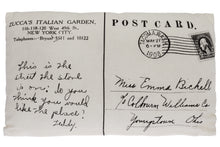 ZUCCA'S ITALIAN GARDEN,
116-118-120 West 49th St.,
NEW YORK CITY.
Telephones—Bryant 5511 and 10122
POST CARD.
This is the
street the store
is on. Do you
think you would
like the place?
Miss Emma Bickell
c/o Colburn Williams Co
Youngstown Ohio